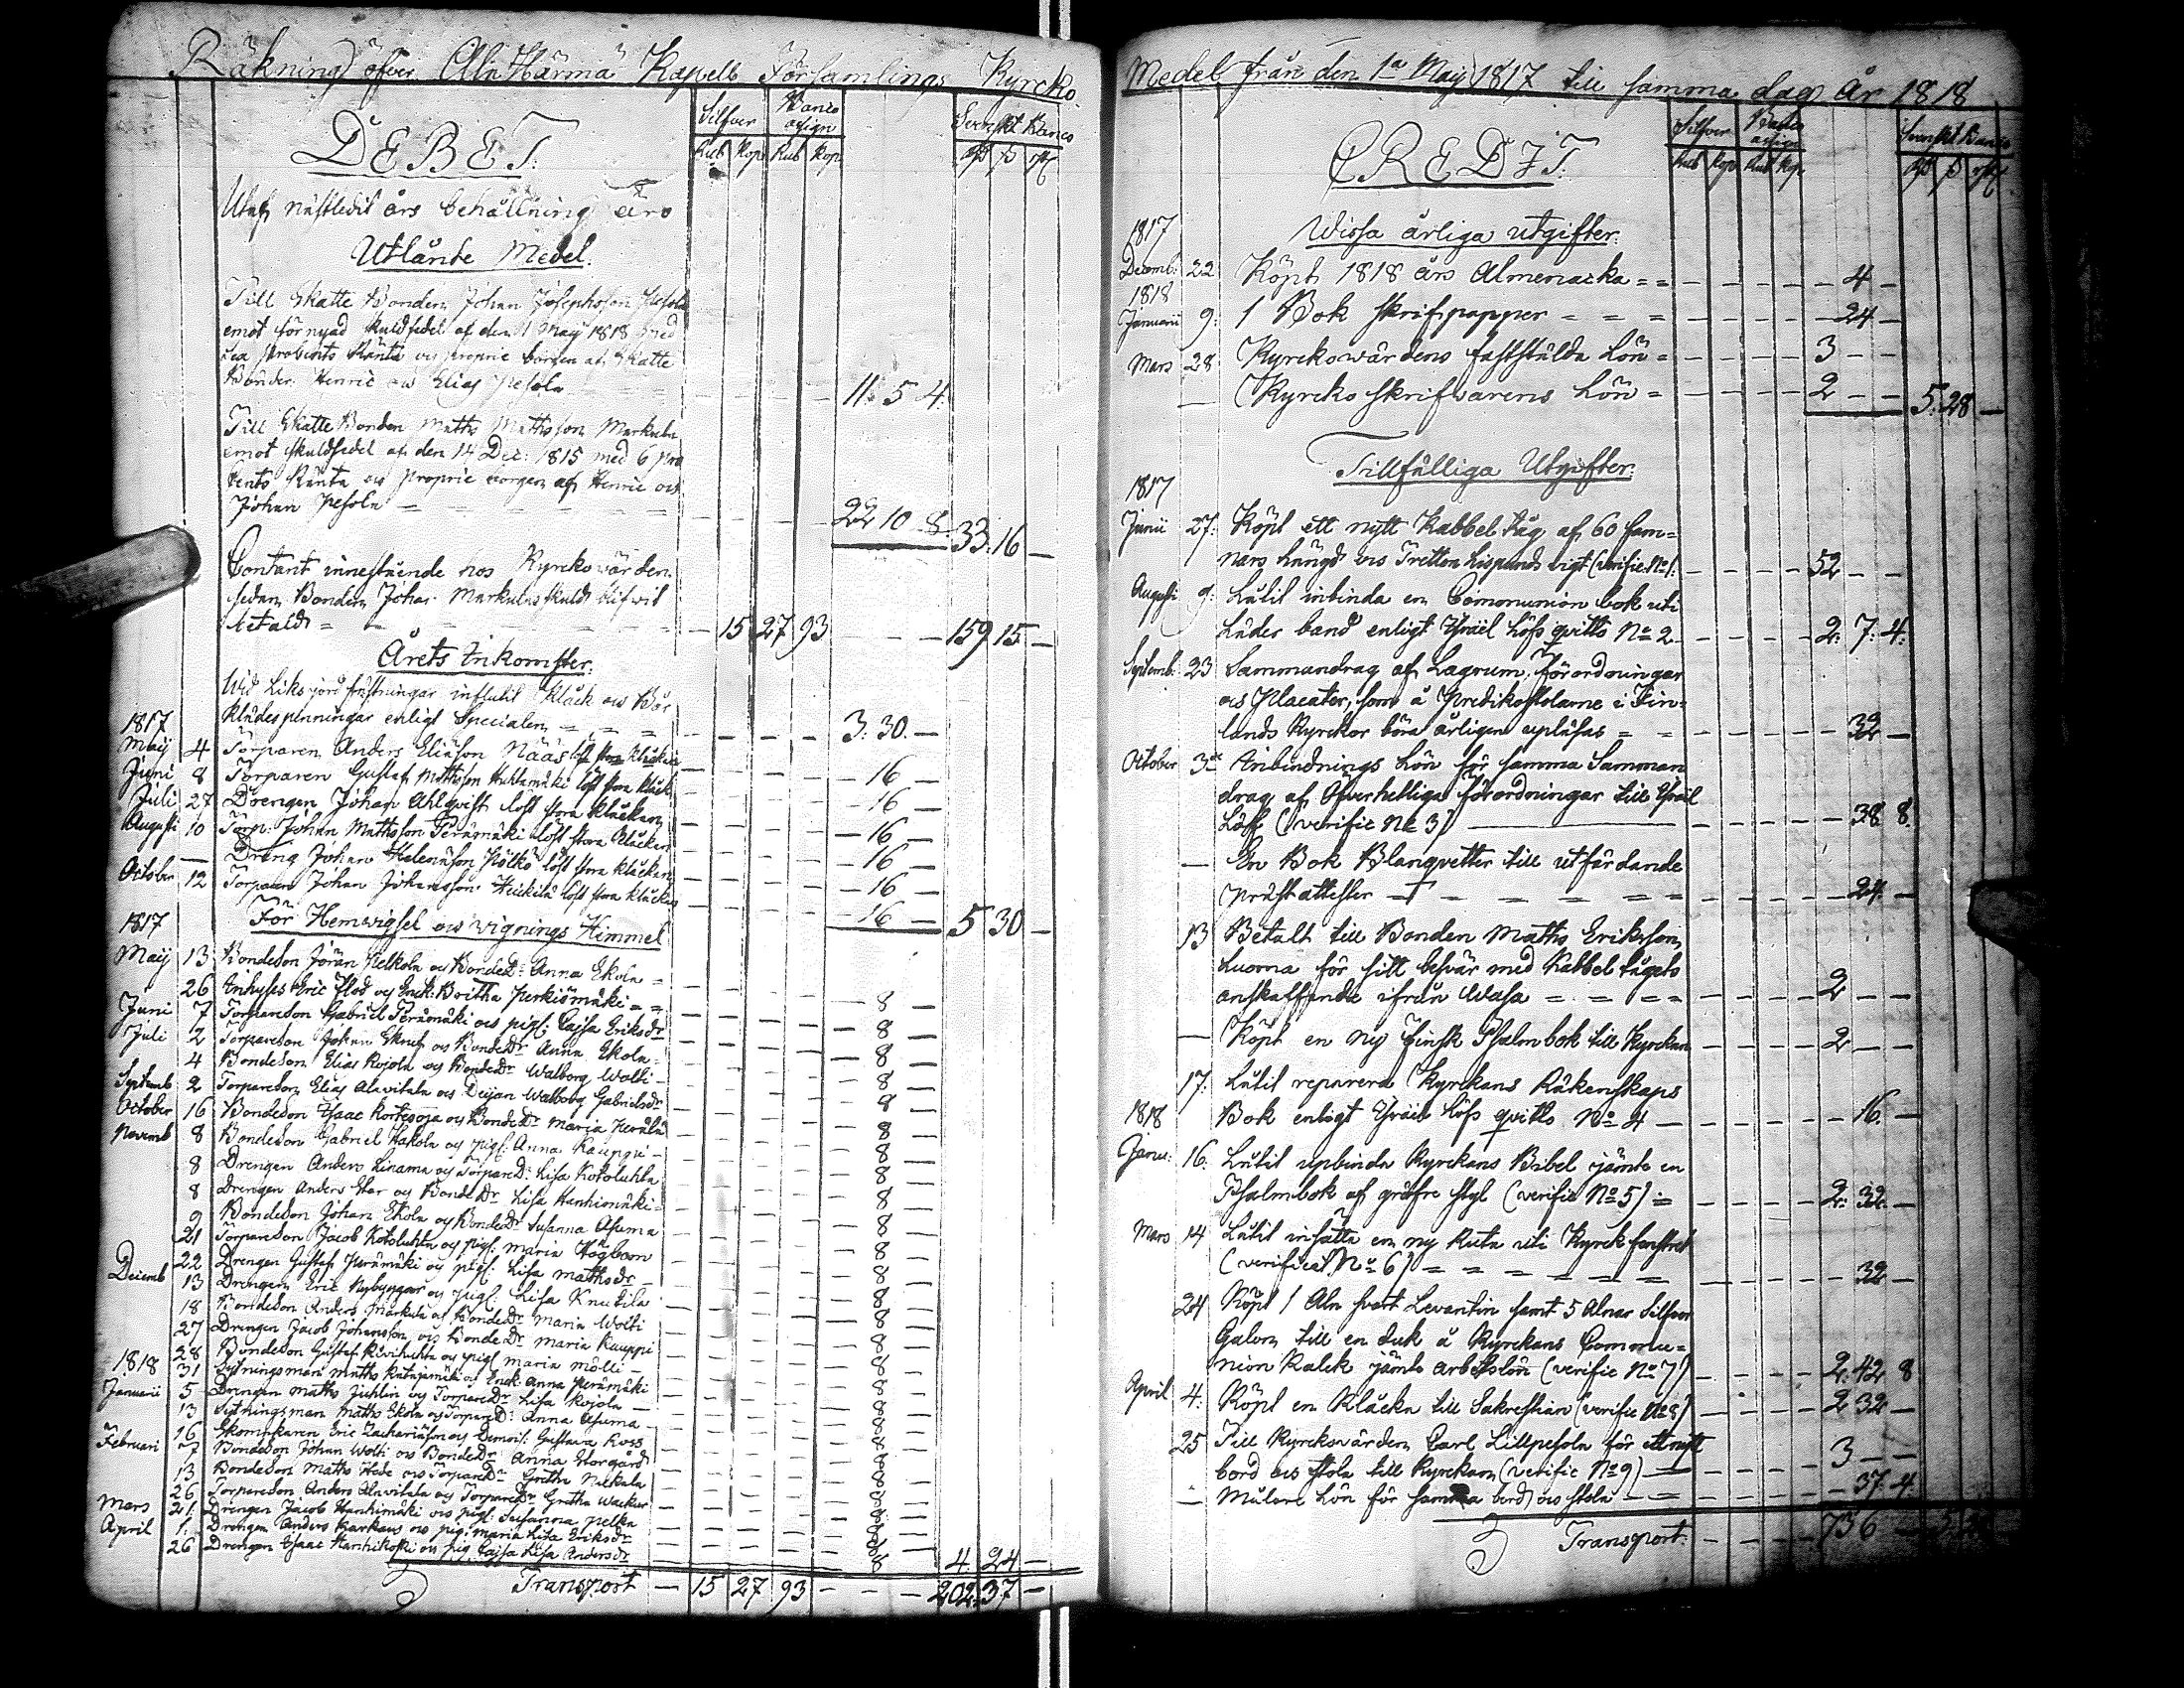 Räkning öfver Aln Härmä Kapell Församlings Kyrcko
DEBET.
Silfver Banco assign Svenskt Banco
Rub Kop Rub Kop
Utaf nästledit års behållning äro
Utlånte Medel.
Till Skatte Bonden Johan Josephsson Pesola
emot förnyad skuldsedel af den 1 May 1818 med
sex procents Ränta och proprie borgen af Skatte
Bönder Henric och Elias Pesola 11 5 4
Till Skatte Bonden Matts Mattsson Markula
emot skuldsedel af den 14 Dec: 1815 med 6 pro
cents Ränta och proprie borgen af Henric och
Johan Pesola 22 10 8 33 16 —
Contant innestående hos Kyrckowärden
sedan Bonden Johan Markulas skuld blifvit
betald = 15 27 93 — — 159 15 —
Årets Inkomster.
Wid Liks jordfästningar influtit Klåck och Bår
1817 klädespenningar enligt Specialen 3: 30. —
Maij 4 Torparen Anders Eliasson Nääs löst stora klåckan — 16 —
Juni 8 Torparen Gustaf Mattsson Huhtamäki löst stora klåck — 16 —
Juli 27 Drengen Johan Ahlqvist löst stora klåckan — 16 —
Augusti 10 Torp: Johan Mattsson Perämäki löst stora klåckan — 16 —
— Dräng Johan Helenäson Pölkö löst stora klåckan — 16 —
October 12 Torparen Johan Johansson Heickilä löst stora klåckan — 16 — 5 30 —
1817 För Hemwigsel och wignings Himmel
Maij 13 Bondeson Jöran Pelkola och BondeDr Anna Ekola = — 8 —
26 Inhyses Eric Flod och Enck: Britha Perkiömäki = = — 8 —
Juni 7 Torpareson Gabriel Perämäki och pig: Cajsa Eriksdr — 8 —
Juli 2 Torpareson Johan Skruf och BondeDr Anna Ekola — 8 —
4 Bondeson Elias Rojola och BondeDr Walborg Wolti — 8 —
Septemb 2 Torpareson Elias Alavitala och Deijan Walborg Gabrielsdr — 8 —
October 16 Bondeson Isaac Kortesoja och BondeDr Maria Perälä — 8 —
Novemb 8 Bondeson Gabriel Hakola och pig: Anna Kauppi — 8 —
8 Drengen Anders Linama och TorpareD: Lisa Kotoluhta — 8 —
8 Drengen Anders Star och BondeDr Lisa Hanhimäki — 8 —
9 Bondeson Johan Ekola och BondeDr Susanna Asuma — 8 —
21 Torpareson Jacob Kotoluhta och pig: Maria Högbom — 8 —
22 Drengen Gustaf Perämäki och pig: Lisa Mathsdr — 8 —
Decemb 13 Drengen Eric Nybyggar och pig: Lisa Knutila — 8 —
18 Bondeson Anders Markula och BondeDr Maria Wolti — 8 —
27 Drengen Jacob Johansson och BondeDr Maria Kauppi — 8 —
28 Bondeson Gustaf Kivihuhta och pig Maria Mölli — 8 —
1818 31 Sytningsman Matts Rutajamäki och Enck: Anna Perämäki — 8 —
Januarii 5 Drengen Matts Juhlin och TorpareDr Lisa Rojola — 8 —
13 Sytningsman Matts Ekola och TorpareD: Anna Asuma — 8 —
16 Skomakaren Eric Zachariäson och Demois: Gustava Ross — 8 —
Februari 7 Bondeson Johan Wolti och BondeDr Anna Storgård — 8 —
13 Bondeson Matts Hede och TorpareDr Gretha Nickula — 8 —
26 Torpareson Anders Alavitala och TorpareDr Gretha Wacker — 8 —
Mars 21 Drengen Jacob Hanhimäki och pig: Susanna Pelka — 8 —
April 1 Drengen Anders Karkaus och pig: Maria Lisa Eriksdr — 8 —
26 Drengen Isaac Hanhikoski och pig Cajsa Lisa Andersdr 8 4. 24 —
Transport — 15 27 93 — — — 202: 37 —
Medel från den 1a Maij 1817 till samma dag år 1818
CREDIT.
Silfver Banco assign Svenskt Banco
Rub Kop Rub Kop
1817 Wissa årliga utgifter.
Decemb: 22 Köpt 1818 års Almenacka = = — 4 —
1818
Januarii 9: 1 Bok skrifpapper = = = — 24 —
Mars 28 Kyrckowärdens fastställda Lön = 3 — —
— Kyrcko skrifvarens Lön = 2 — — 5: 28 —
Tillfälliga Utgifter.
1817
Junii 27: Köpt ett nytt Kabbel tåg af 60 fam=
nars längd och Tretton Lispunds vigt (verific. No 1: 52 — —
Augusti 9: Låtit inbinda en Communion bok uti
Läder band enligt Israel Löfs qvitto No 2 2: 7: 4:
Septemb: 23 Sammandrag af Lagrum, Förordningar
och Placater, som å Predikostolarne i Fin=
lands Kyrckor böra årligen upläsas = = — 32 —
October 3e Inbindnings Lön för samma Samman
drag af Öfverhetliga förordningar till Israel
Löff (verific No 3) — 38 8.
— En Bok Blanqvetter till utfärdande
Präst attester — 24. —
13 Betalt till Bonden Matts Eriksson
Luoma för sitt besvär med Kabbel tågets
anskaffande ifrån Wasa = = = = 2 — —
— Köpt en ny Finsk Psalmbok till Kyrckan 2 — —
17: Låtit reparera Kyrckans Räkenskaps
1818 Bok enligt Israel Löfs qvitto No 4 — 16. —
Janu: 16: Låtit upbinda Kyrckans Bibel jämte en
Psalmbok af gröfre styl (verific No 5) = 2: 32. —
Mars 14 Låtit insätta en ny Ruta uti Kyrck fenstret
(verific: No 6) = = = = = = — 32 —
24 Köpt 1 Aln svart Levantin samt 5 Alnar Silfver
Galon till en duk å Kyrckans Commu=
nion Kalck jämte arbetslön (verific No 7) 2: 42 8
April 4: Köpt en Klåcka till Sakrestian (verific No 8) 2 32 —
25 Till Kyrckovärden Carl Lillpesola för ett nytt
bord och stolar till Kyrckan (verific No 9) 3 — —
— Målare Lön för samma bord och stolar — 37: 4.
Transport. 73 6 —